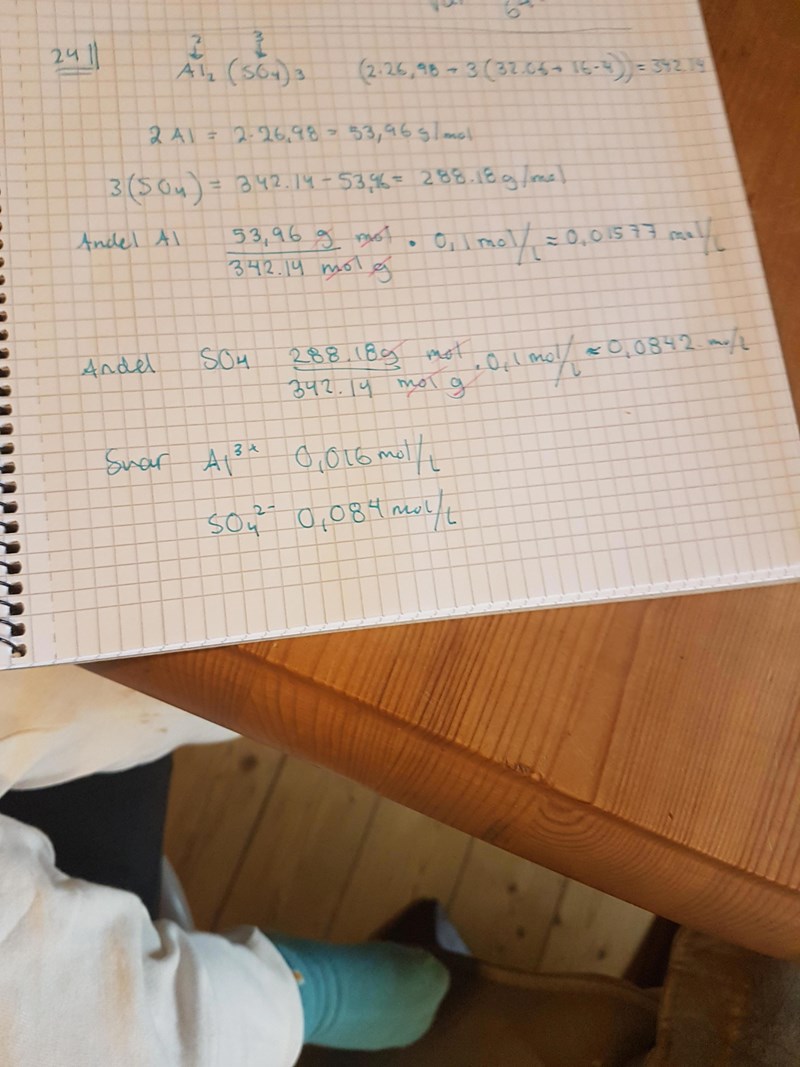 24
2 3
Al₂ (SO₄)₃ (2·26,98 + 3(32.06 + 16·4)) = 342.14
2 Al = 2·26,98 = 53,96 g/mol
3(SO₄) = 342.14 - 53,96 = 288.18 g/mol
Andel Al 53,96 g mol · 0,1 mol/L ≈ 0,01577 mol/L
342.14 mol g
Andel SO₄ 288.18 g mol · 0,1 mol/L ≈ 0,0842 mol/L
342.14 mol g
Svar Al³⁺ 0,016 mol/L
SO₄²⁻ 0,084 mol/L